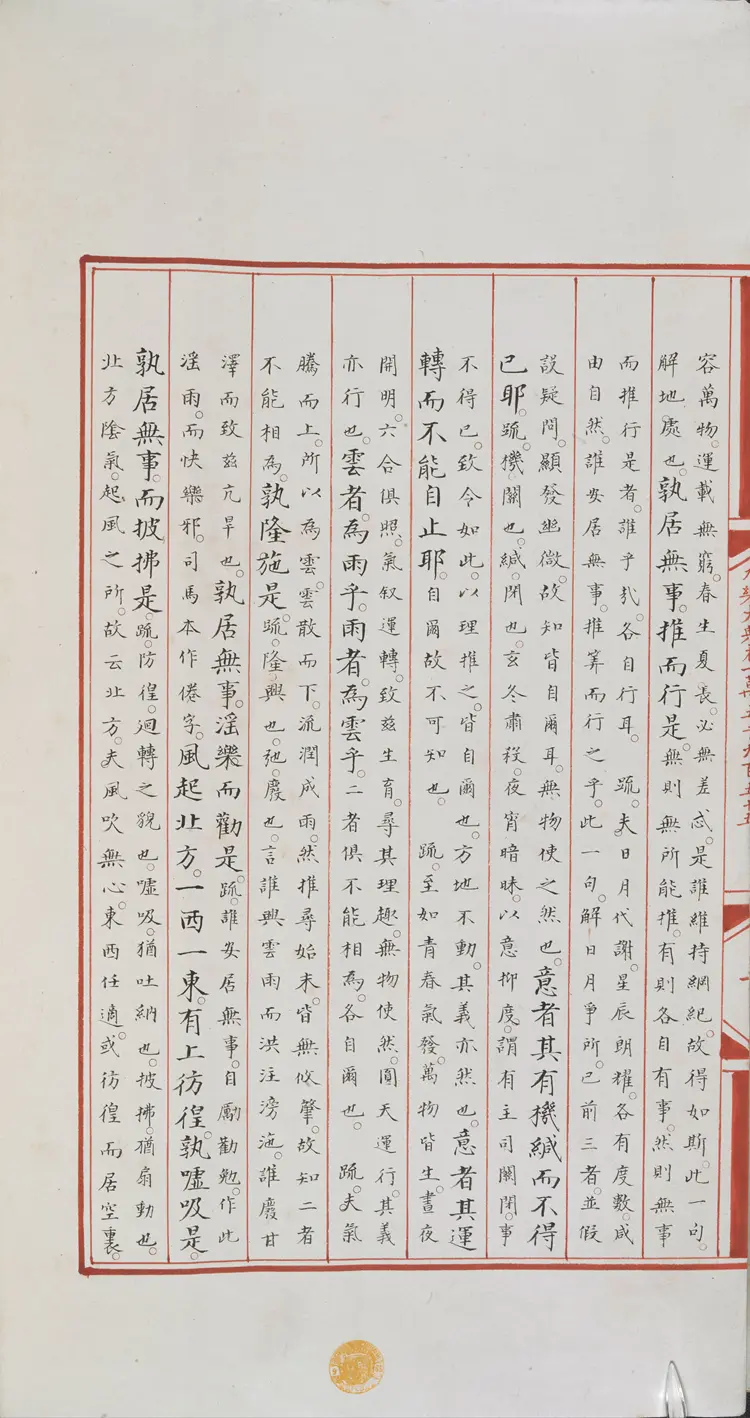 永樂大典卷一萬五千九百五十五
容萬物。運載無窮。春生夏長。必無差忒。是誰維持綱紀。故得如斯。此一句。
解地處也。孰居無事。推而行是。無則無所能推。有則各自有事。然則無事
而推行是者。誰乎㢤。各自行耳。疏。夫日月代謝。星辰朗耀。各有度數。咸
由自然。誰安居無事。推筭而行之乎。此一句。解日月爭所。已前三者。並假
設疑問。顯發幽微。故知皆自爾耳。無物使之然也。意者其有機緘而不得
已耶。疏。機關也。緘。閉也。玄冬肅殺。夜宵暗昧。以意抑度。謂有主司關閉。事
不得已。致令如此。以理推之。皆自爾也。方地不動。其義亦然也。意者其運
轉而不能自止耶。自爾故不可知也。疏。至如青春氣發。萬物皆生。晝夜
開明。六合俱照。氣叙運轉。致兹生育。尋其理趣。無物使然。圓天運行。其義
亦行也。雲者。為雨乎。雨者。為雲乎。二者俱不能相為。各自爾也。疏。夫氣
騰而上。所以為雲。雲散而下。流潤成雨。然推尋始末。皆無攸肇。故知二者
不能相為。孰隆施是。疏。隆。興也。弛。廢也。言誰興雲雨而洪注滂沲。誰廢甘
澤而致兹亢旱也。孰居無事。淫樂而勸是。疏。誰安居無事。自勵勸勉。作此
淫雨。而快樂邪。司馬本作倦字。風起北方。一西一東。有上彷徨。孰噓吸是。
孰居無事。而披拂是。疏。彷徨。迴轉之貌也。噓吸。猶吐納也。披拂。猶扇動也。
北方陰氣。起風之所。故云北方。夫風吹無心。東西任適。或彷徨而居空裏。